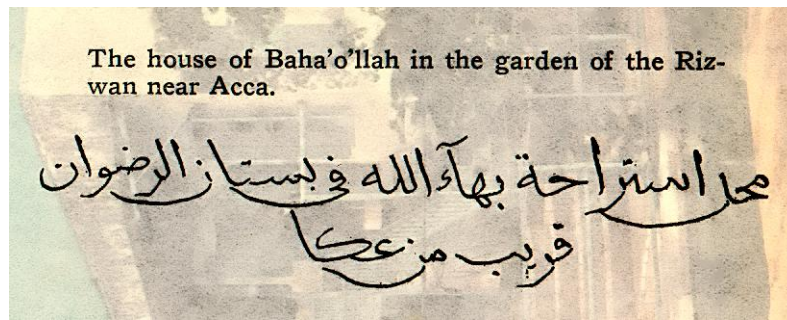 The house of Baha’o’llah in the garden of the Riz-
wan near Acca.
محل استراحة بهآء الله فى بستان الرضوان
قريب من عكا